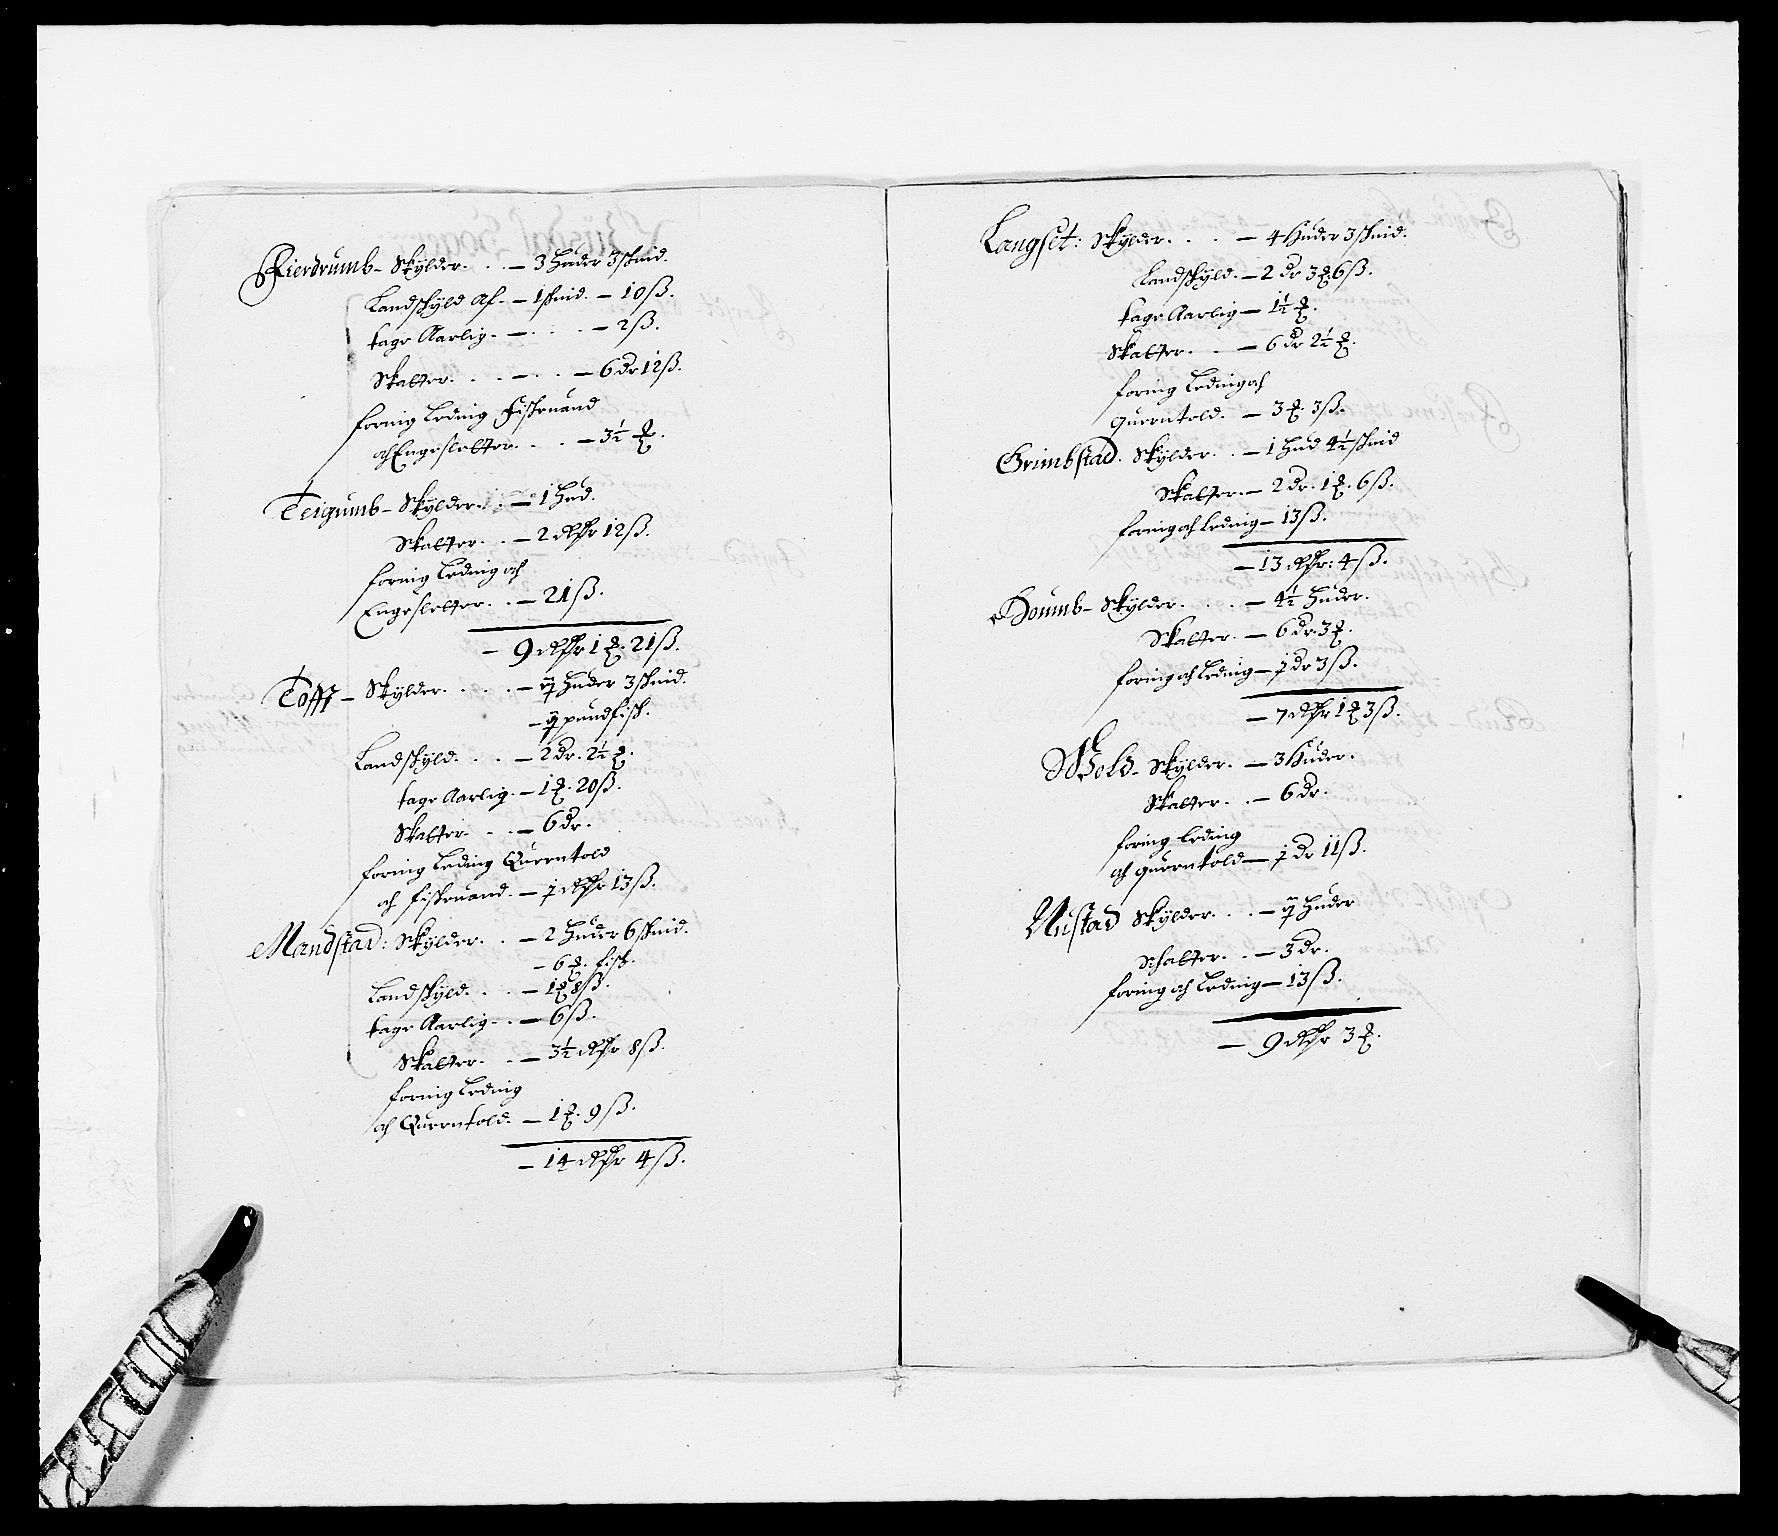 Bierdrumb - Skylder . . . - 3 huder 3 skind.
Landskyld Af. - 1 skind. - 10 ß.
tage Aarlig. - . . . - 2 ß.
Skatter. . . - . . - 6 dr 12 ß.
foring Leding Fiskevand
och Engesletter. . . . - 3½ ꝝ.
Teigumb - Skylder. . - 1 hud.
Skatter. . . - 2 Rdr 12 ß.
foring Leding och
Engesletter. . . - 21 ß.
- 9 Rdr 1 ꝝ. 21 ß.
Tofft - Skylder. . . . . - 7 huder 3 skind.
- 7 pund fisk.
Landskyld. . . . - 2 dr. 2½ ꝝ.
tage Aarlig. - 1 ꝝ. 20 ß.
Skatter. . . . - 6 dr.
foring Leding Querntold
och fiskevand. - 1 Rdr 13 ß.
Mandstad: Skylder. . . - 2 huder 6 skind.
- 6 ꝝ. fisk.
Landskyld. . . . - 1 ꝝ 8 ß.
tage Aarlig. . . - 6 ß.
Skatter. . . - 3½ Rdr 8 ß.
foring Leding
och Querntold. - 1 ꝝ. 9 ß.
- 14 Rdr 4 ß.
Langset: Skylder. . . . - 4 huder 3 skind.
Landskyld. - 2 dr 3 ꝝ. 6 ß.
tage Aarlig - 1½ ꝝ.
Skatter. . . - 6 dr 2½ ꝝ.
foring Leding och
Querntold. - 3 ꝝ. 3 ß.
Grimbstad. Skylder. . - 1 hud 4½ skind
Skatter. - 2 dr. 1 ꝝ. 6 ß.
foring och leding - 13 ß.
- 13 Rdr: 4 ß.
Doumb - Skylder. . . . - 4½ huder.
Skatter. - 6 dr. 3 ꝝ.
foring och Leding - 1 dr 3 ß.
- 7 Rdr 1 ꝝ 3 ß.
Wold - Skylder. - 3 huder.
Skatter. . . - 6 dr.
foring leding
och querntold - 1 dr 11 ß.
Nustad Skylder. . . - 7 huder
Schatter. . - 3 dr.
foring och Leding - 13 ß.
- 9 Rdr 3 ꝝ.